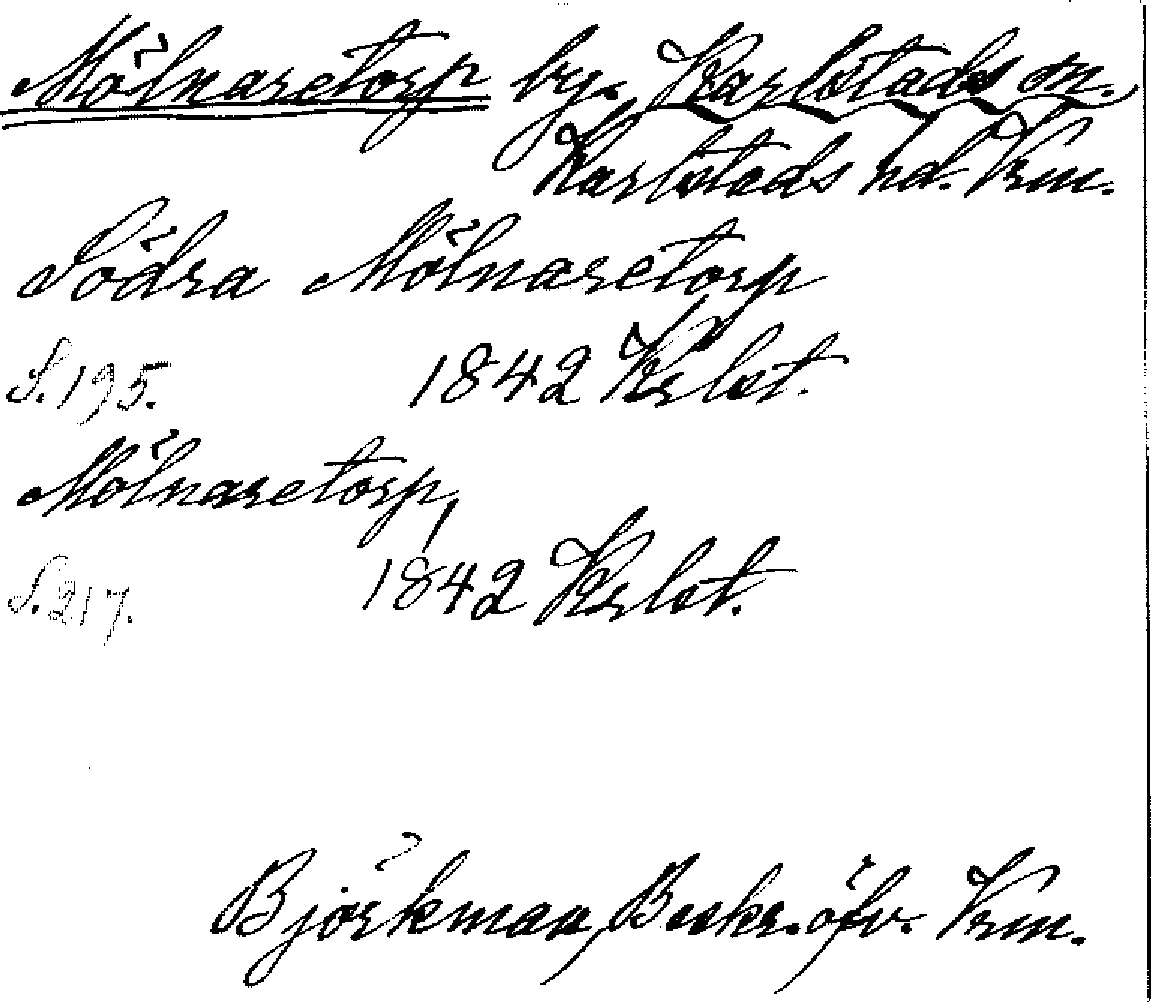 Mölnaretorp by. Karlstads sn.
Karlstads hd. Vrm.
Södra Mölnaretorp
S. 195. 1842
Mölnaretorp,
S. 217. 1842
Björkman, Beskr. öfv. Vrm.